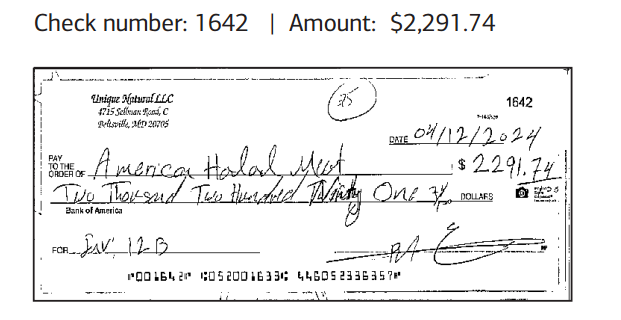 Check number: 1642 | Amount: $2,291.74
Unique Natural LLC
4715 Sellman Road, C
Beltsville, MD 20705
25
1642
DATE 04/12/2024
PAY
TO THE
ORDER OF American Halal Meat $ 2291.74
Two Thousand Two Hundred Ninety One 74/ DOLLARS
Bank of America
FOR Inv: 12B
⑈001642⑈ ⑆052001633⑆ 446052336357⑈